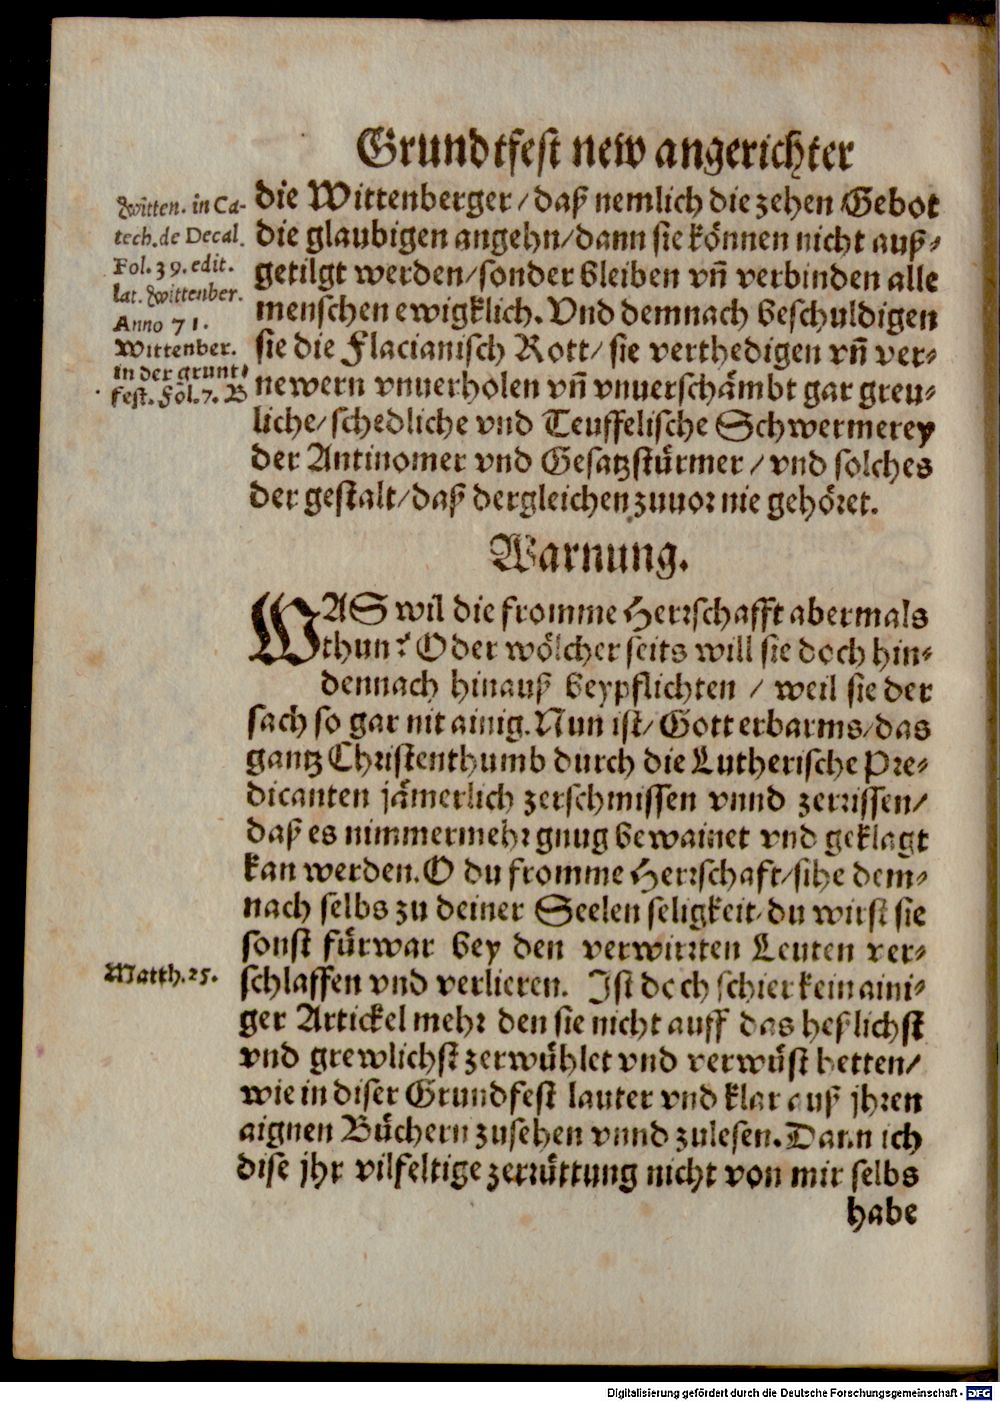 Grundtfest new angerichter
Witten. in Ca-
tech. de Decal.
Fol. 39. edit.
lat. Wittenber.
Anno 71.
Wittenber.
in der grunt⸗
fest. Fol. 7. B
die Wittenberger / daß nemlich die zehen Gebot
die glaubigen angehn / dann sie können nicht auß⸗
getilgt werden / sonder bleiben vñ verbinden alle
menschen ewigklich. Vnd demnach beschuldigen
sie die Flacianisch Rott / sie verthedigen vñ ver⸗
newern vnuerholen vñ vnuerschämbt gar greu⸗
liche / schedliche vnd Teuffelische Schwermerey
der Antinomer vnd Gesatzstürmer / vnd solches
der gestalt / daß dergleichen zuuor nie gehöret.
Warnung.
WAS wil die fromme Herrschafft abermals
thun? Oder wölcher seits will sie doch hin⸗
dennach hinauß beypflichten / weil sie der
sach so gar nit ainig. Nun ist / Gott erbarms / das
gantz Christenthumb durch die Lutherische Pre⸗
dicanten jämerlich zerschmissen vnnd zerrissen /
daß es nimmermehr gnug bewainet vnd geklagt
kan werden. O du fromme Herrschaft / sihe dem⸗
nach selbs zu deiner Seelen seligkeit / du wirst sie
sonst fürwar bey den verwirrten Leuten ver⸗
Matth. 25.
schlaffen vnd verlieren. Ist doch schier kein aini⸗
ger Artickel mehr den sie nicht auff das heßlichst
vnd grewlichst zerwühlet vnd verwüst hetten /
wie in diser Grundfest lauter vnd klar auß jhren
aignen Büchern zusehen vnnd zulesen. Dann ich
dise jhr vilfeltige zerrüttung nicht von mir selbs
habe
Digitalisierung gefördert durch die Deutsche Forschungsgemeinschaft - DFG